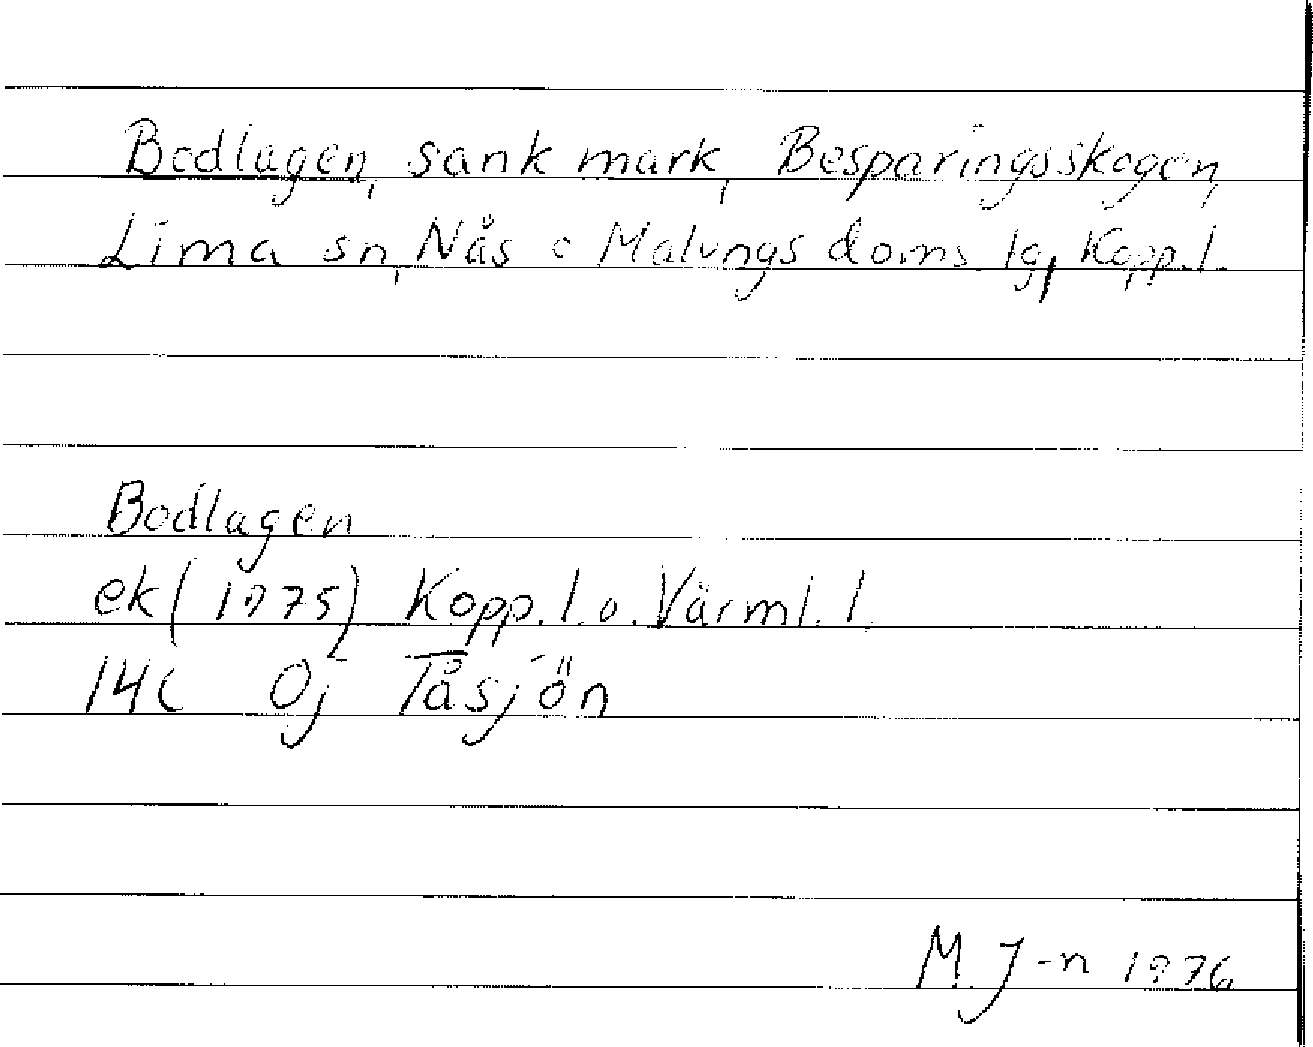 Bodlagen, sank mark, Besparingsskogen,
Lima sn, Nås o Malungs doms. lg, Kopp. l.
Bodlagen
ek (1975) Kopp. l. o. Värml. l.
14C 0j Tåsjön
M. J-n 1976